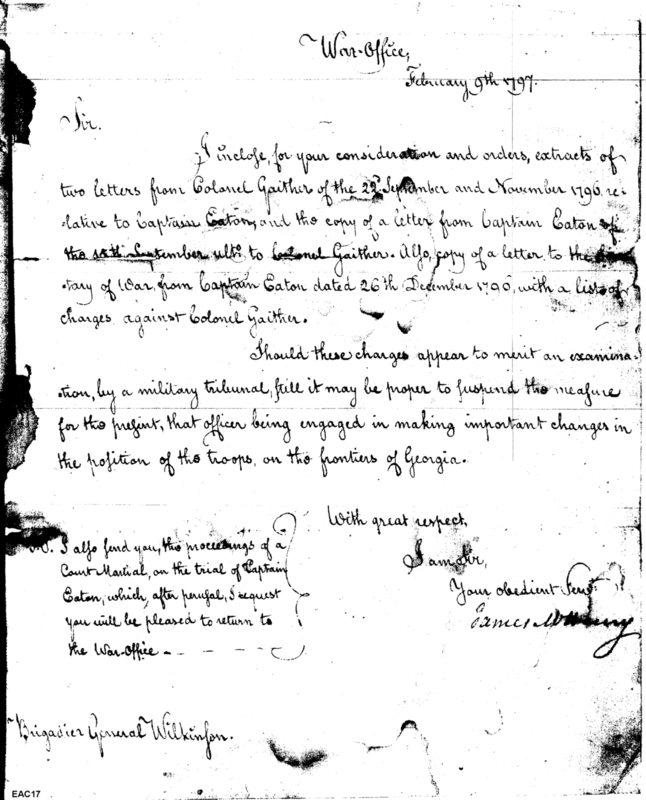 War-Office,
February 9th 1797.
Sir.
I inclose, for your consideration and orders, extracts of
two letters from Colonel Gaither of the 22d September and November 1796, re-
-lative to Captain Eaton, and the copy of a letter from Captain Eaton of
the September ulto. to Colonel Gaither. Also, copy of a letter to the
-tary of War, from Captain Eaton dated 26th December 1796, with a list of
charges against Colonel Gaither.
Should these charges appear to merit an examina-
-tion, by a military tribunal, still it may be proper to suspend the measure
for the present, that officer being engaged in making important changes in
the position of the troops, on the frontiers of Georgia.
With great respect,
I am Sir,
Your obedient Servt.
James McHenry
I also send you, the proceedings of a
Court Martial, on the trial of Captain
Eaton, which, after perusal, I request
you will be pleased to return to
the War-Office
Brigadier General Wilkinson.
EAC17